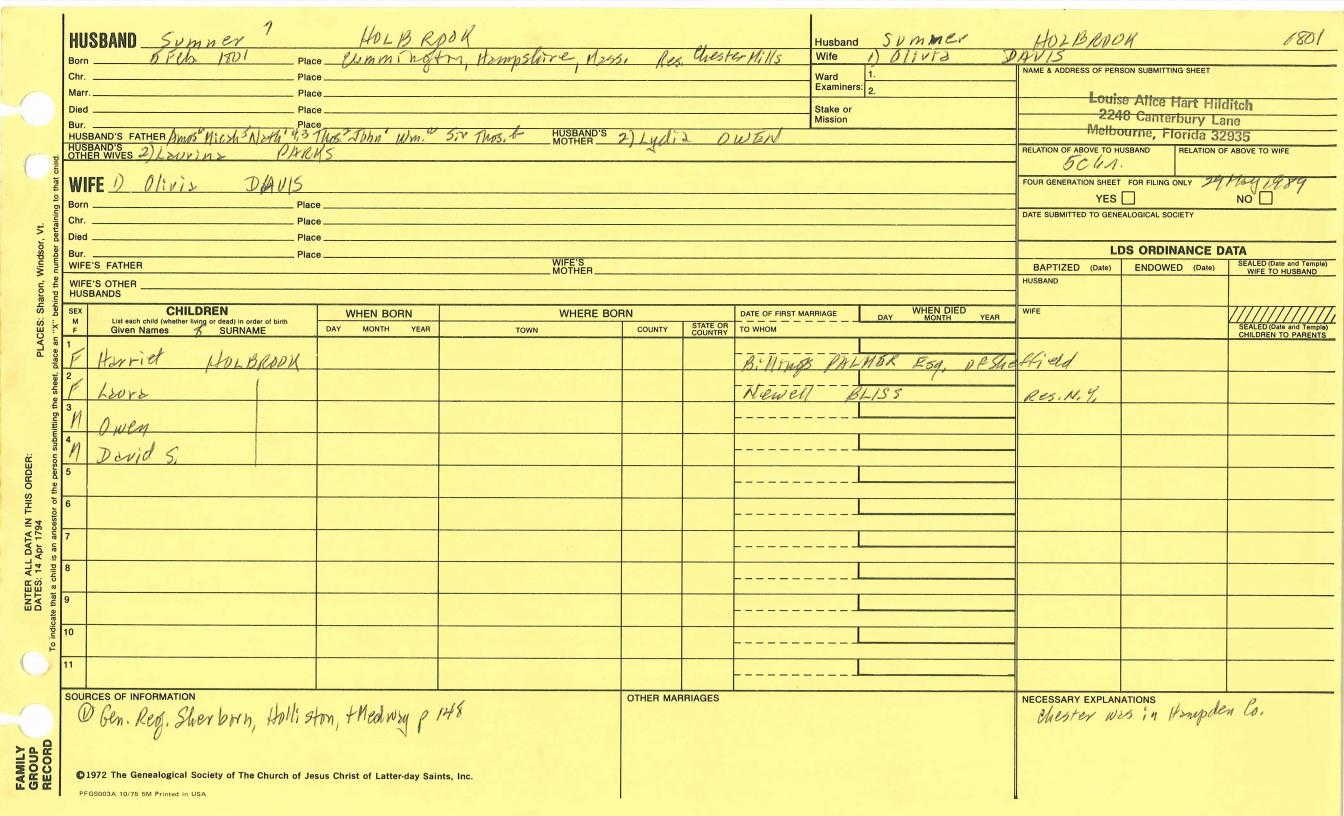 HUSBAND Sumner 7 HOLBROOK
Born 5 Feb 1801 Place Cummington, Hampshire, Mass. Res. Chester Mills
Chr. Place
Marr. Place
Died Place
Bur. Place
HUSBAND'S FATHER Amos Micah Nath'l Thos. John Wm. Sir Thos. HUSBAND'S MOTHER 2) Lydia OWEN
HUSBAND'S OTHER WIVES 2) Laurina PARKS
WIFE 1) Olivia DAVIS
Born Place
Chr. Place
Died Place
Bur. Place
WIFE'S FATHER WIFE'S MOTHER
WIFE'S OTHER HUSBANDS
Husband Sumner HOLBROOK 1801
Wife 1) Olivia DAVIS
Ward Examiners: 1. 2.
Stake or Mission
NAME & ADDRESS OF PERSON SUBMITTING SHEET
Louise Alice Hart Hilditch
2248 Canterbury Lane
Melbourne, Florida 32935
RELATION OF ABOVE TO HUSBAND RELATION OF ABOVE TO WIFE
5c4r.
FOUR GENERATION SHEET FOR FILING ONLY 29 May 1989
YES NO
DATE SUBMITTED TO GENEALOGICAL SOCIETY
LDS ORDINANCE DATA
BAPTIZED (Date) ENDOWED (Date) SEALED (Date and Temple) WIFE TO HUSBAND
HUSBAND
WIFE
SEALED (Date and Temple) CHILDREN TO PARENTS
SEX M F
CHILDREN
List each child (whether living or dead) in order of birth
Given Names SURNAME
WHEN BORN
DAY MONTH YEAR
WHERE BORN
TOWN COUNTY STATE OR COUNTRY
DATE OF FIRST MARRIAGE
TO WHOM
WHEN DIED
DAY MONTH YEAR
1 F Harriet HOLBROOK Billings PALMER Esq. of Sheffield
2 F Laura Newell BLISS Res. N.Y.
3 M Owen
4 M David S.
5
6
7
8
9
10
11
SOURCES OF INFORMATION
① Gen. Reg. Sherborn, Holliston, + Medway p 148
OTHER MARRIAGES
NECESSARY EXPLANATIONS
Chester was in Hampden Co.
©1972 The Genealogical Society of The Church of Jesus Christ of Latter-day Saints, Inc.
PFGS003A 10/75 5M Printed in USA
FAMILY GROUP RECORD
ENTER ALL DATA IN THIS ORDER:
DATES: 14 Apr 1794
PLACES: Sharon, Windsor, Vt.
To indicate that a child is an ancestor of the person submitting the sheet, place an "X" behind the number pertaining to that child.